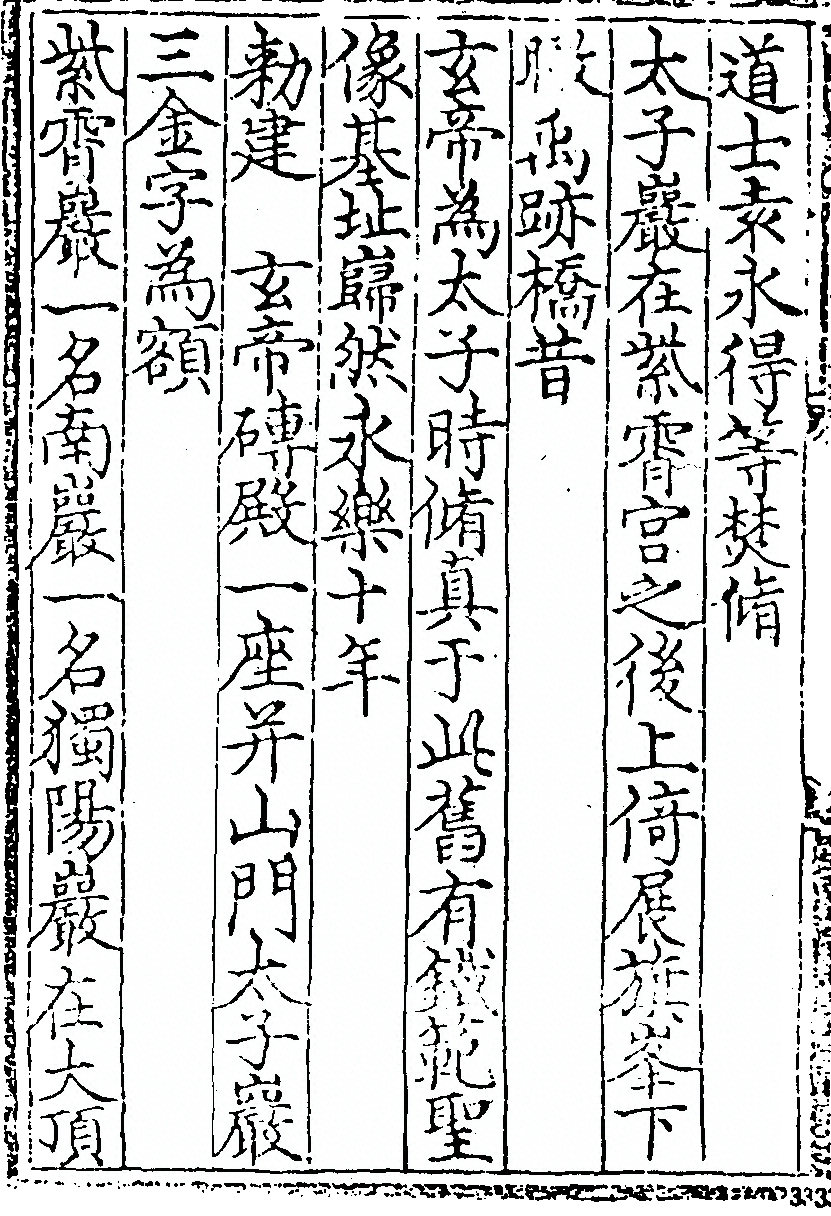 道士袁永得等焚脩
太子巖在紫霄宮之後上倚展旗峯下
瞰禹跡橋昔
玄帝為太子時脩真于此舊有鐵範聖
像基址巋然永樂十年
勑建　玄帝磚殿一座并山門太子巖
三金字為額
紫霄巖一名南巖一名獨陽巖在大頂